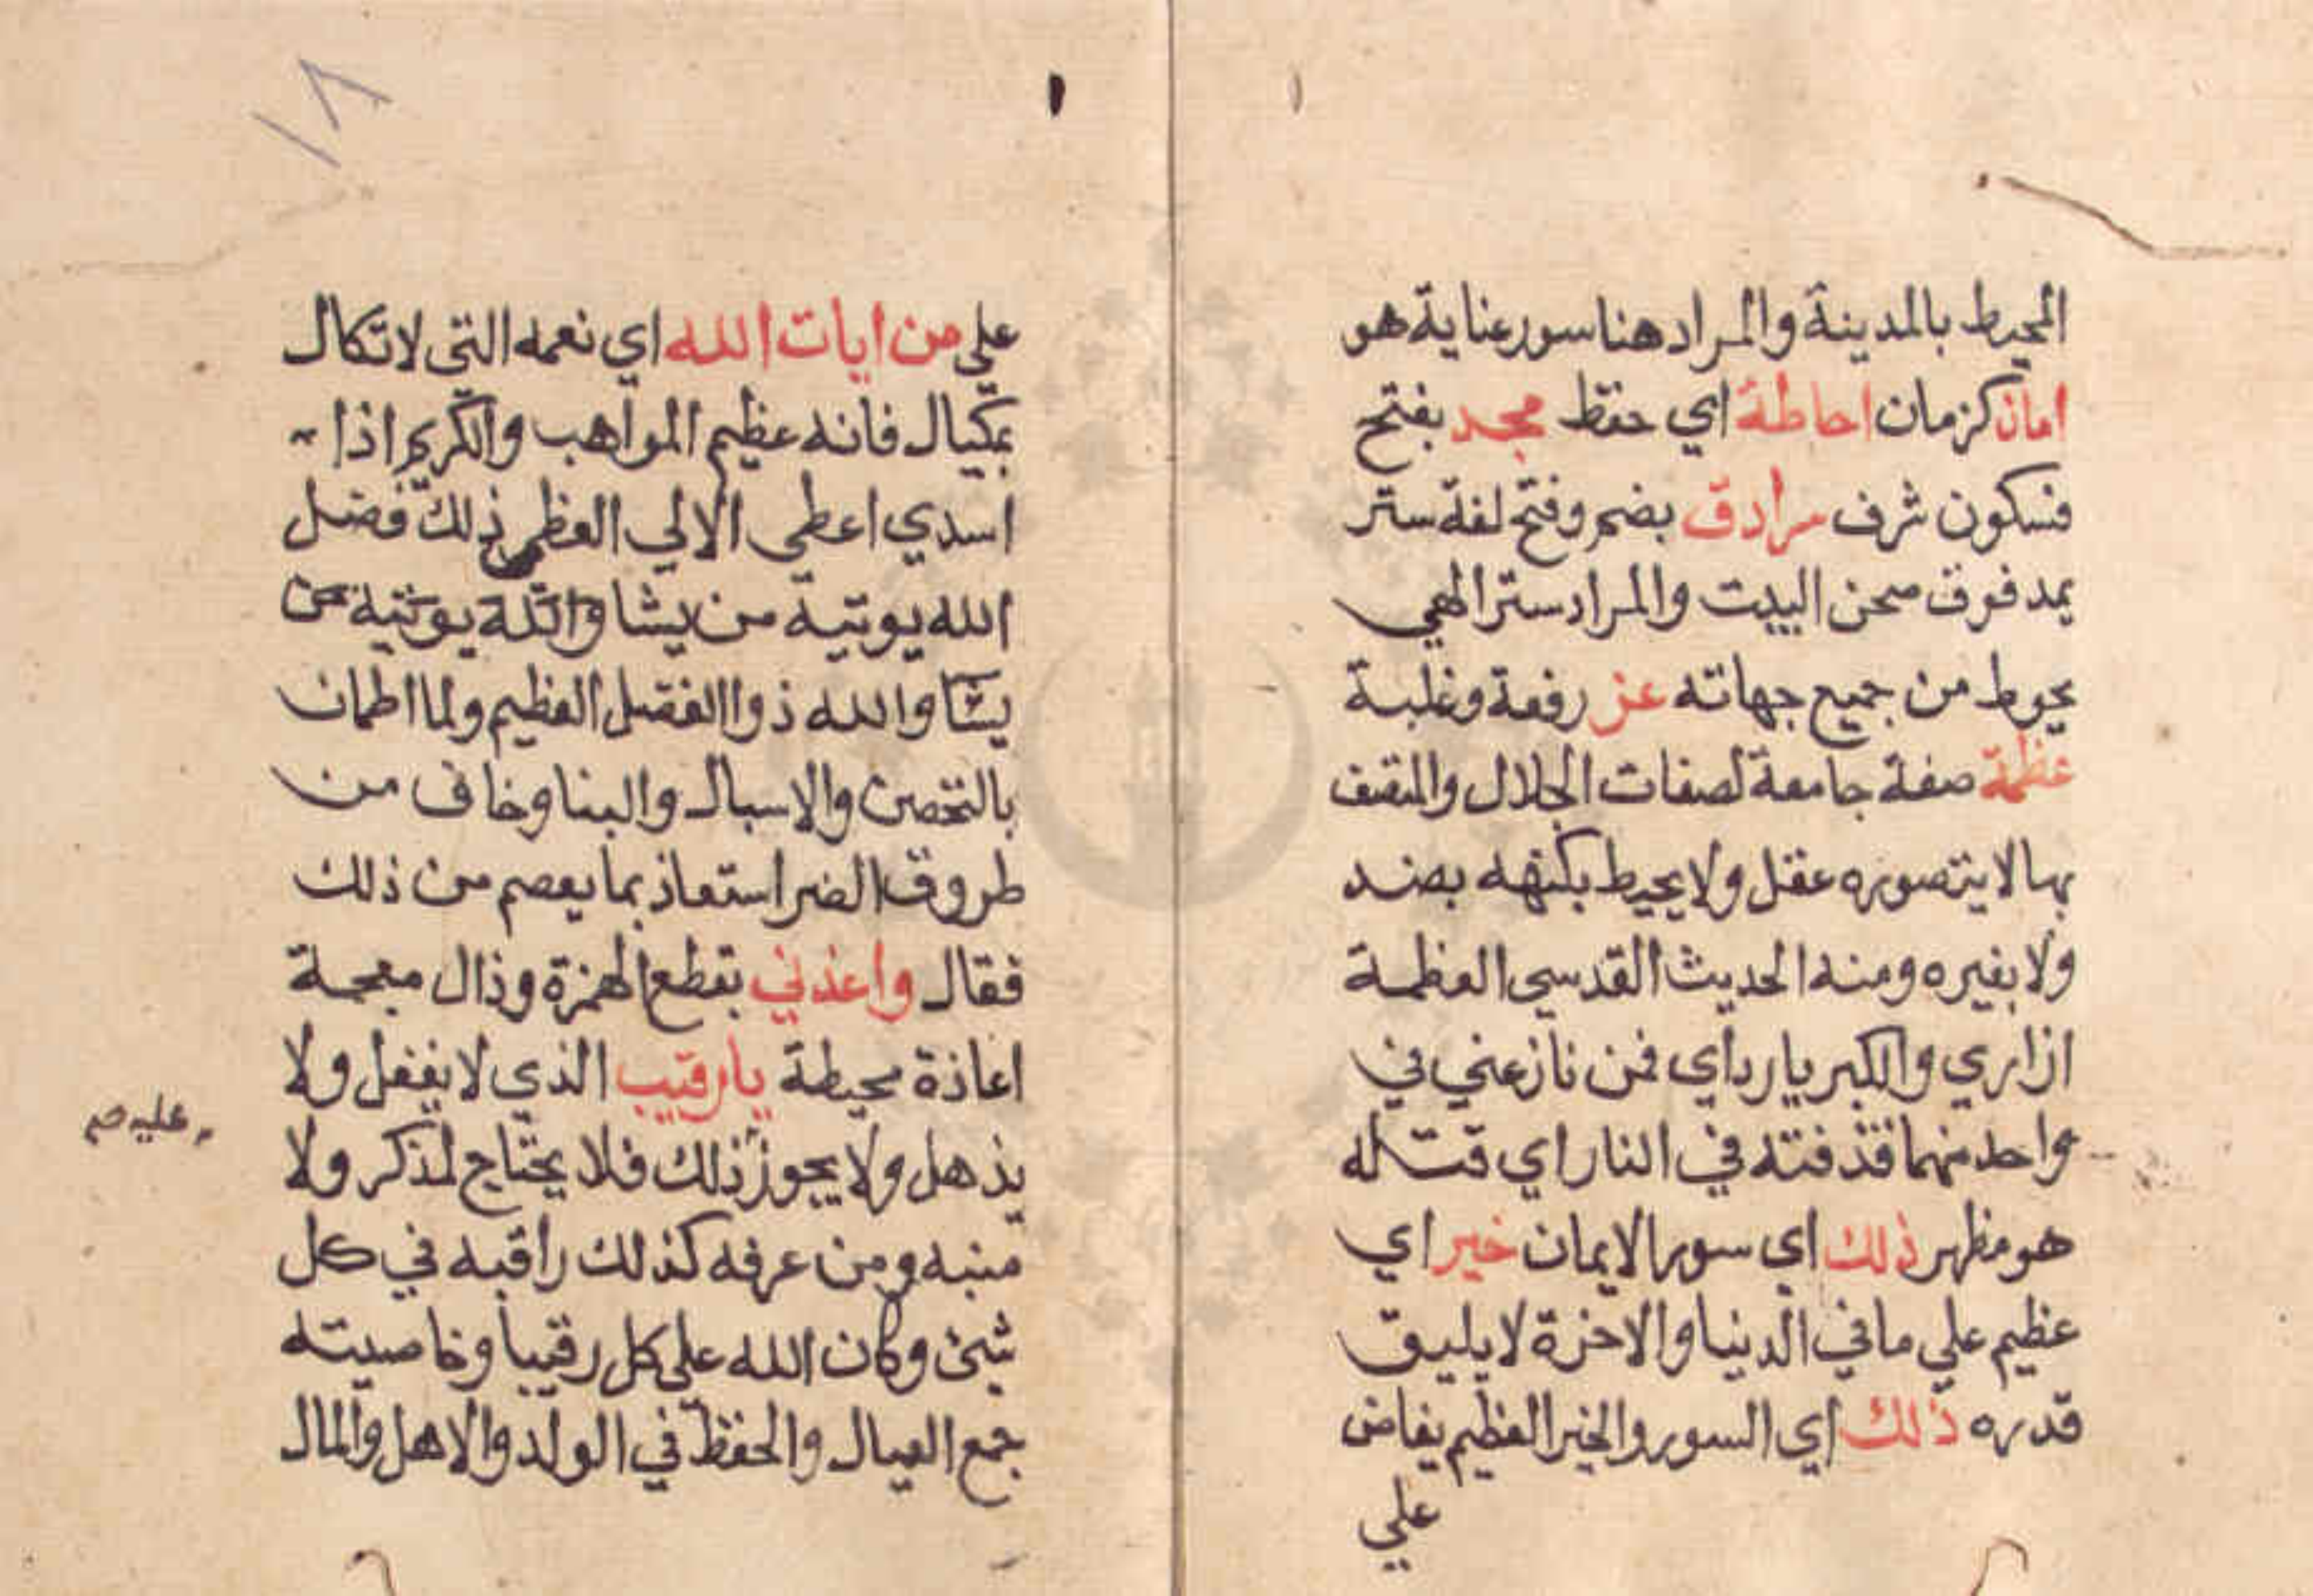 المحيط بالمدينة والمراد هنا سور عناية هو
امان كزمان احاطة اي حفظ مجد بفتح
فسكون شرف سرادق بضم وفتح لغة ستر
يمد فوق صحن البيت والمراد ستر الهي
يحوط من جميع جهاته عز رفعة وغلبة
عظمة صفة جامعة لصفات الجلال والمتصف
بها لا يتصوره عقل ولا يحيط بكنهه بصند
ولا بغيره ومنه الحديث القدسي العظمة
ازاري والكبريا رداي فمن نازعني في
واحد منهما قذفته في النار اي قتله
هو مظهر ذلك اي سور الايمان خير اي
عظيم علي ما في الدنيا والاخرة لا يليق
قدره ذلك اي السور والخير العظيم يفاض
علي
١٨
علي من ايات الله اي نعمه التي لا تكال
بمكيال فانه عظيم المواهب والكريم اذا
اسدي اعطي الالي العظم ذلك فضل
الله يوتيه من يشا والله يوتيه من
يشا والله ذوا الفضل العظيم ولما اطمان
بالتحصن والاسبال والبنا وخاف من
طروق الضر استعاذ بما يعصم من ذلك
فقال واعذني بقطع الهمزة وذال معجمة
اعاذة محيطة يا رقيب الذي لا يغفل ولا
يذهل ولا يجوز ذلك فلا يحتاج لمذكر ولا
عليه صح
منبه ومن عرفه كذلك راقبه في كل
شئ وكان الله علي كل رقيبا وخاصيته
جمع العيال والحفظ في الولد والاهل والمال